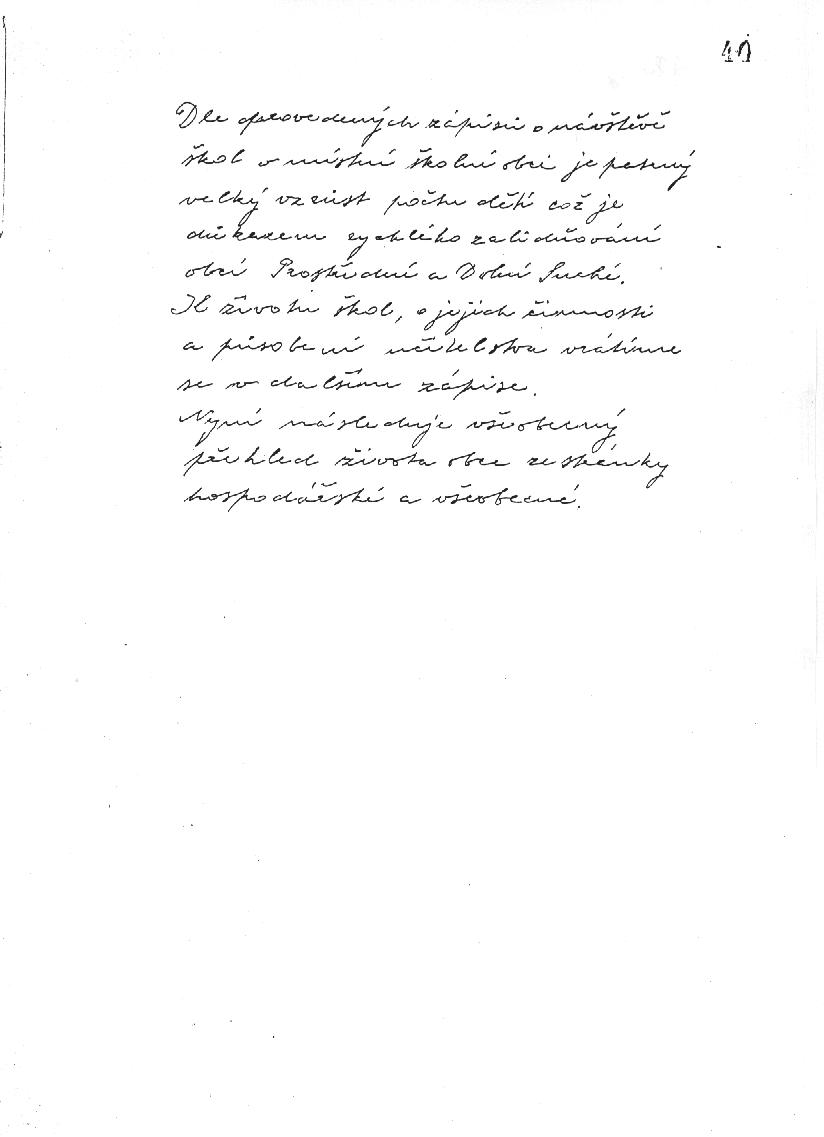 40
Dle provedených zápisů o návštěvě
škol v místní školní obci je patrný
velký vzrůst počtu dětí což je
důkazem rychlého zalidňování
obcí Prostřední a Dolní Suché.
K životu škol, o jejich činnosti
a působení učitelstva vrátíme
se v dalším zápise.
Nyní následuje všeobecný
přehled života obce ze stránky
hospodářské a všeobecné.